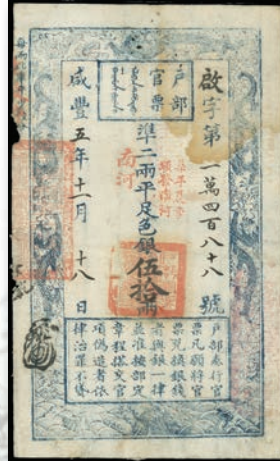 户部
官票
啟字第一萬四百八十八號
準二兩平足色銀伍拾兩
南河
咸豐五年十一月十八日
户部奏行官
票凡願將官
票兌換銀錢
者與銀一律
並准按部定
章程搭交官
項偽造者依
律治罪不貸